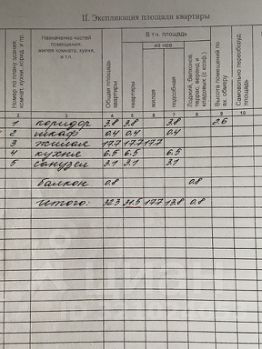 II. Экспликация площади квартиры
Номер по плану здания комнат, кухни, корид. и пр.
Назначение частей помещения, жилая комната, кухня, и т.п.
Общая площадь квартиры
В т.ч. площадь
из нее
квартиры
жилая
подсобная
Лоджий, балконов, террас, веранд и кладовых (с коэф.)
Высота помещений по вн. обмеру
Самовольно переоборуд. площадь
2 3 4 5 6 7 8 9 10
1 коридор 3.8 3.8 3.8 2.6
2 шкаф 0.4 0.4 0.4
3 жилая 17.7 17.7 17.7
4 кухня 6.5 6.5 6.5
5 санузел 3.1 3.1 3.1
балкон 0.8 0.8
Итого: 32.3 31.5 17.7 13.8 0.8